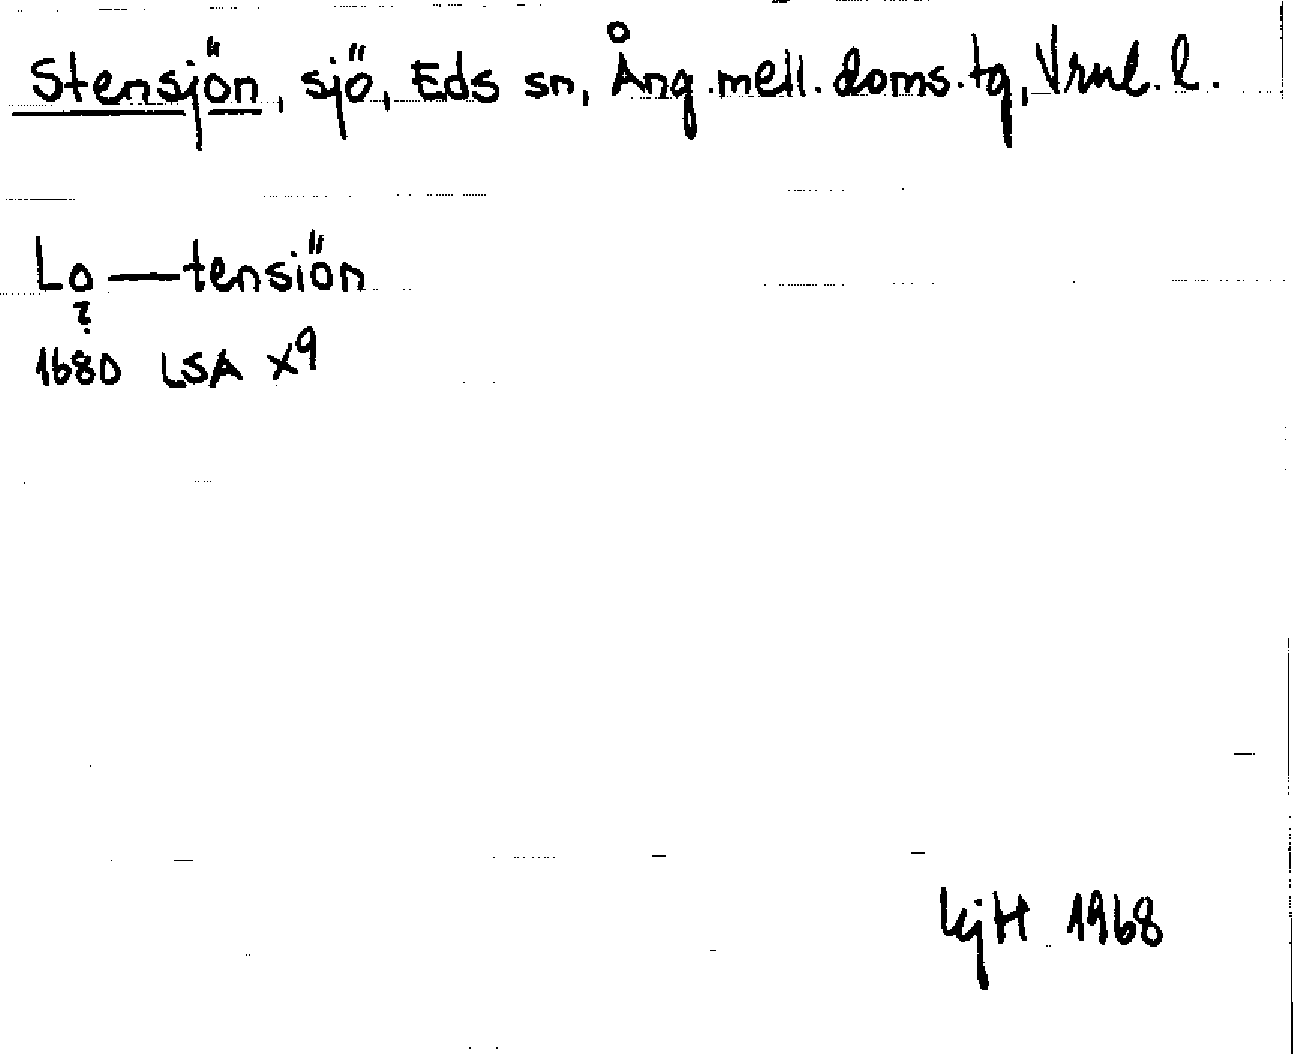 Stensjön, sjö, Eds sn, Ång. mell. doms. tg, Vrnl. l.
Lo — tensiön
?
1680 LSA X9
KjH 1968